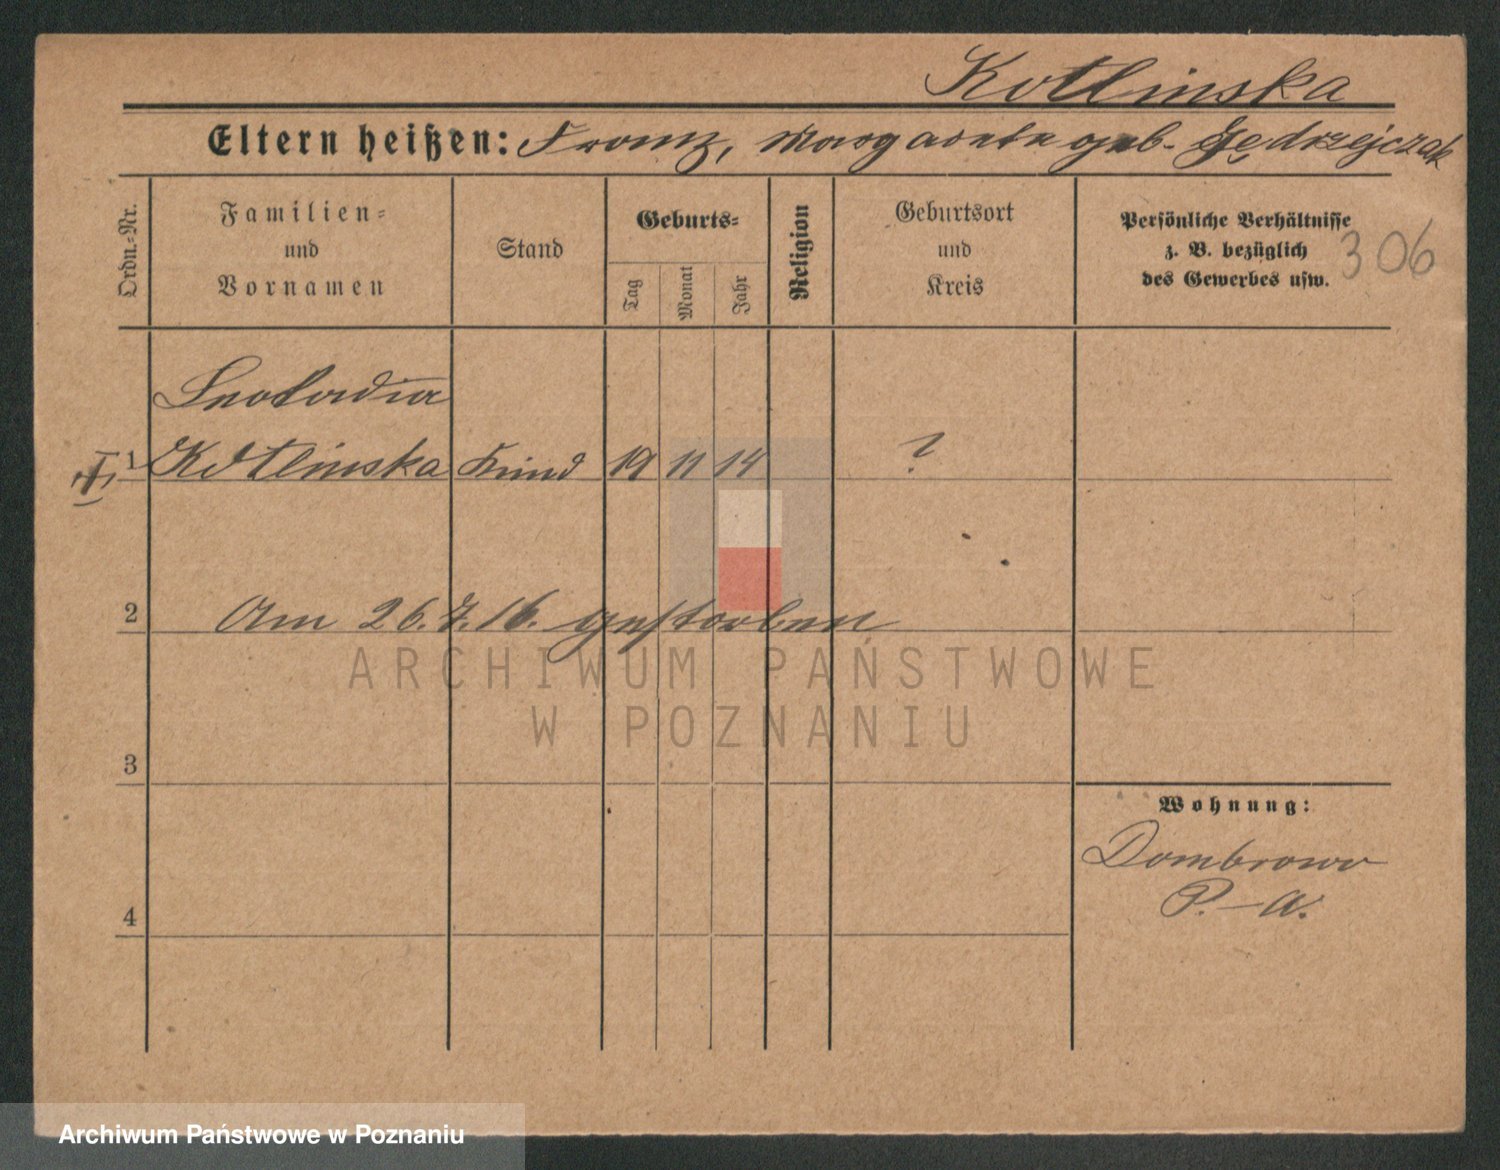 Kotlinska
Eltern heißen: Franz, Margarete geb. Jędrzejczak
Ordn.-Nr.
Familien-
und
Vornamen
Stand
Geburts-
Tag
Monat
Jahr
Religion
Geburtsort
und
Kreis
Persönliche Verhältnisse
z. B. bezüglich
des Gewerbes usw.
306
Leokadia
1 Kotlinska Kind 19 11 14 ?
2 Am 26.7.16. gestorben
ARCHIWUM PAŃSTWOWE
W POZNANIU
3
Wohnung:
Dombrowo
P.-A.
4
Archiwum Państwowe w Poznaniu